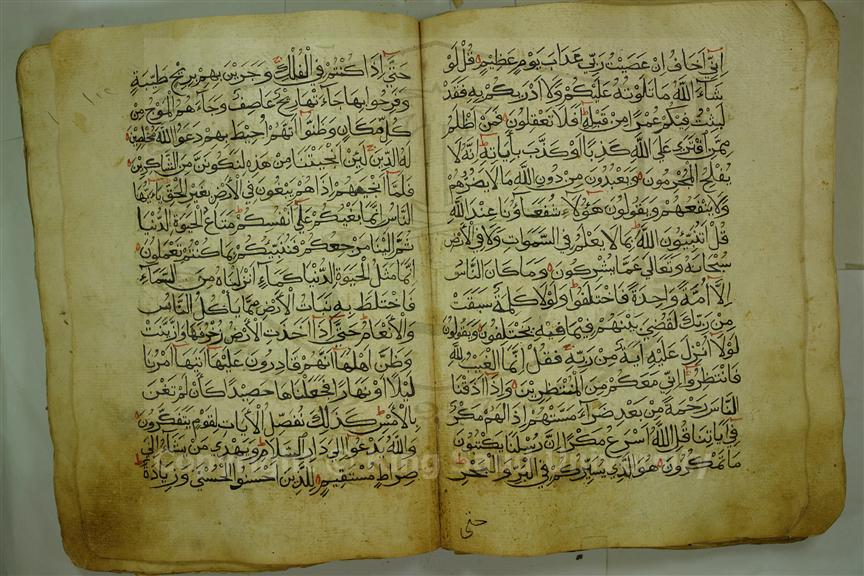 إني أخاف ان عصيت ربي عذاب يوم عظيم قل لو
شاء الله ما تلوته عليكم ولا ادريكم به فقد
لبثت فيكم عمرا من قبله افلا تعقلون فمن اظلم
ممن افترى على الله كذبا او كذب بآياته انه لا
يفلح المجرمون ويعبدون من دون الله ما لا يضرهم
ولا ينفعهم ويقولون هؤلاء شفعاؤنا عند الله
قل اتنبئون الله بما لا يعلم في السموات ولا في الأرض
سبحانه وتعالى عما يشركون وما كان الناس
الا أمة واحدة فاختلفوا ولولا كلمة سبقت
من ربك لقضي بينهم فيما فيه يختلفون ويقولون
لولا انزل عليه آية من ربه فقل إنما الغيب لله
فانتظروا اني معكم من المنتظرين واذا أذقنا
الناس رحمة من بعد ضراء مستهم اذا لهم مكر
في آياتنا قل الله أسرع مكرا إن رسلنا يكتبون
ما تمكرون هو الذي يسيركم في البر والبحر
حتى
حتى إذا كنتم في الفلك وجرين بهم بريح طيبة
وفرحوا بها جاءتها ريح عاصف وجاءهم الموج من
كل مكان وظنوا أنهم أحيط بهم دعوا الله مخلصين
له الدين لئن انجيتنا من هذه لنكونن من الشاكرين
فلما انجيهم إذا هم يبغون في الأرض بغير الحق يا أيها
الناس إنما بغيكم على أنفسكم متاع الحيوة الدنيا
ثم الينا مرجعكم فننبئكم بما كنتم تعملون
إنما مثل الحيوة الدنيا كماء انزلناه من السماء
فاختلط به نبات الأرض مما يأكل الناس
والأنعام حتى إذا أخذت الأرض زخرفها وازينت
وظن اهلها أنهم قادرون عليها أتيها أمرنا
ليلا أو نهارا فجعلناها حصيدا كأن لم تغن
بالأمس كذلك نفصل الآيات لقوم يتفكرون
والله يدعوا إلى دار السلام ويهدي من يشاء إلى
صراط مستقيم للذين أحسنوا الحسنى وزيادة